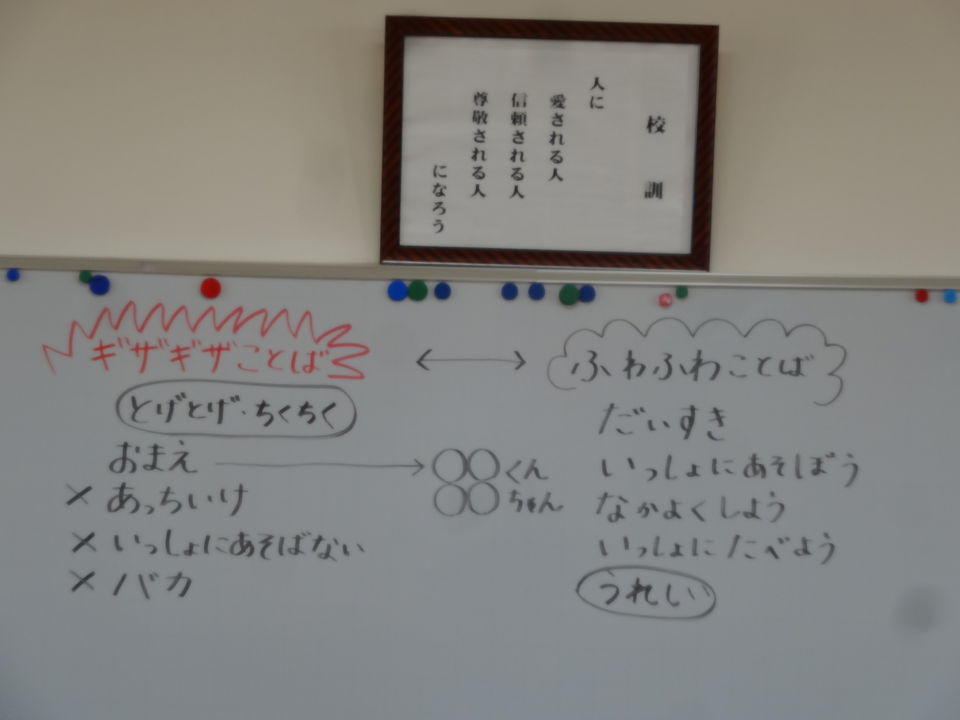 校訓
人に
愛される人
信頼される人
尊敬される人
になろう
ギザギザことば
とげとげ・ちくちく
おまえ
× あっちいけ
× いっしょにあそばない
× バカ
○○くん
○○ちゃん
ふわふわことば
だいすき
いっしょにあそぼう
なかよくしよう
いっしょにたべよう
うれしい